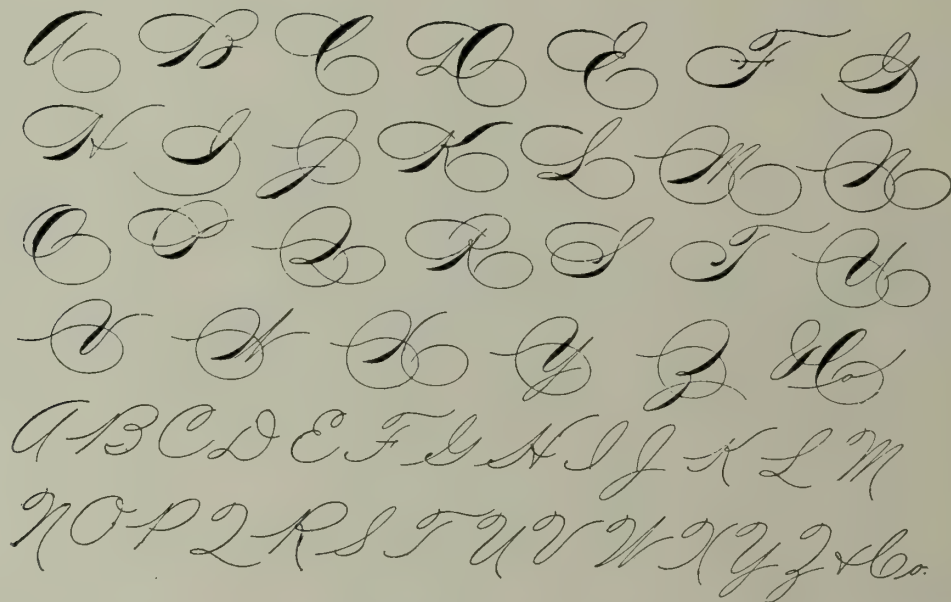 A B C D E F G
H I J K L M N
O P Q R S T U
V W X Y Z &Co
A B C D E F G H I J K L M
N O P Q R S T U V W X Y Z &Co.